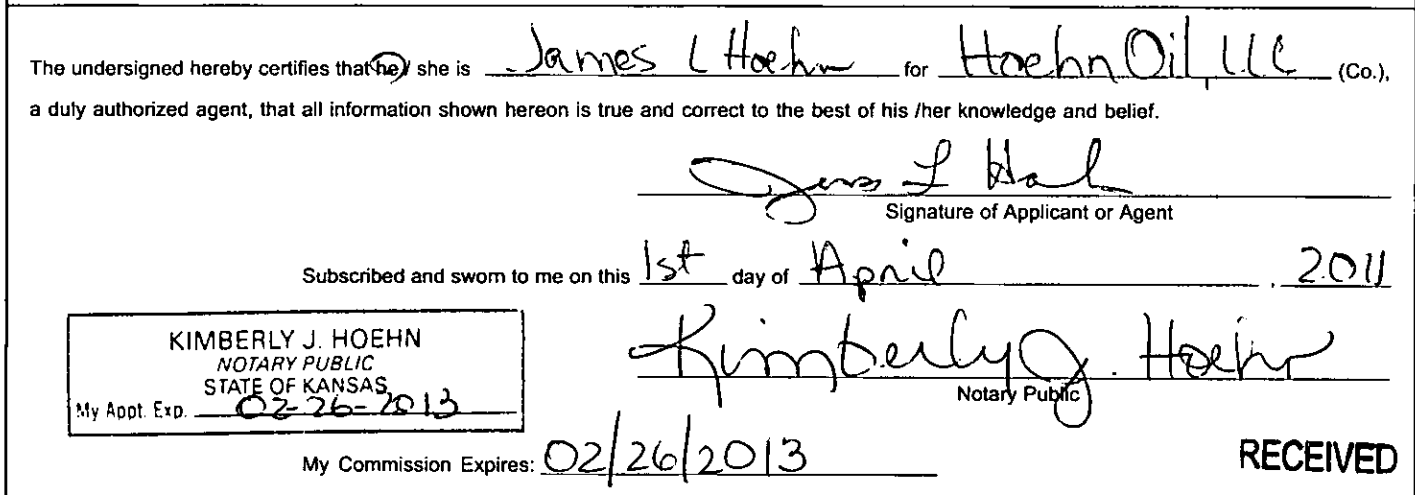 The undersigned hereby certifies that he/ she is James L Hoehn for Hoehn Oil, LLC (Co.),
a duly authorized agent, that all information shown hereon is true and correct to the best of his /her knowledge and belief.
James L Hoehn
Signature of Applicant or Agent
Subscribed and sworn to me on this 1st day of April, 2011
KIMBERLY J. HOEHN
NOTARY PUBLIC
STATE OF KANSAS
My Appt. Exp. 02-26-2013
Kimberly J. Hoehn
Notary Public
My Commission Expires: 02/26/2013
RECEIVED